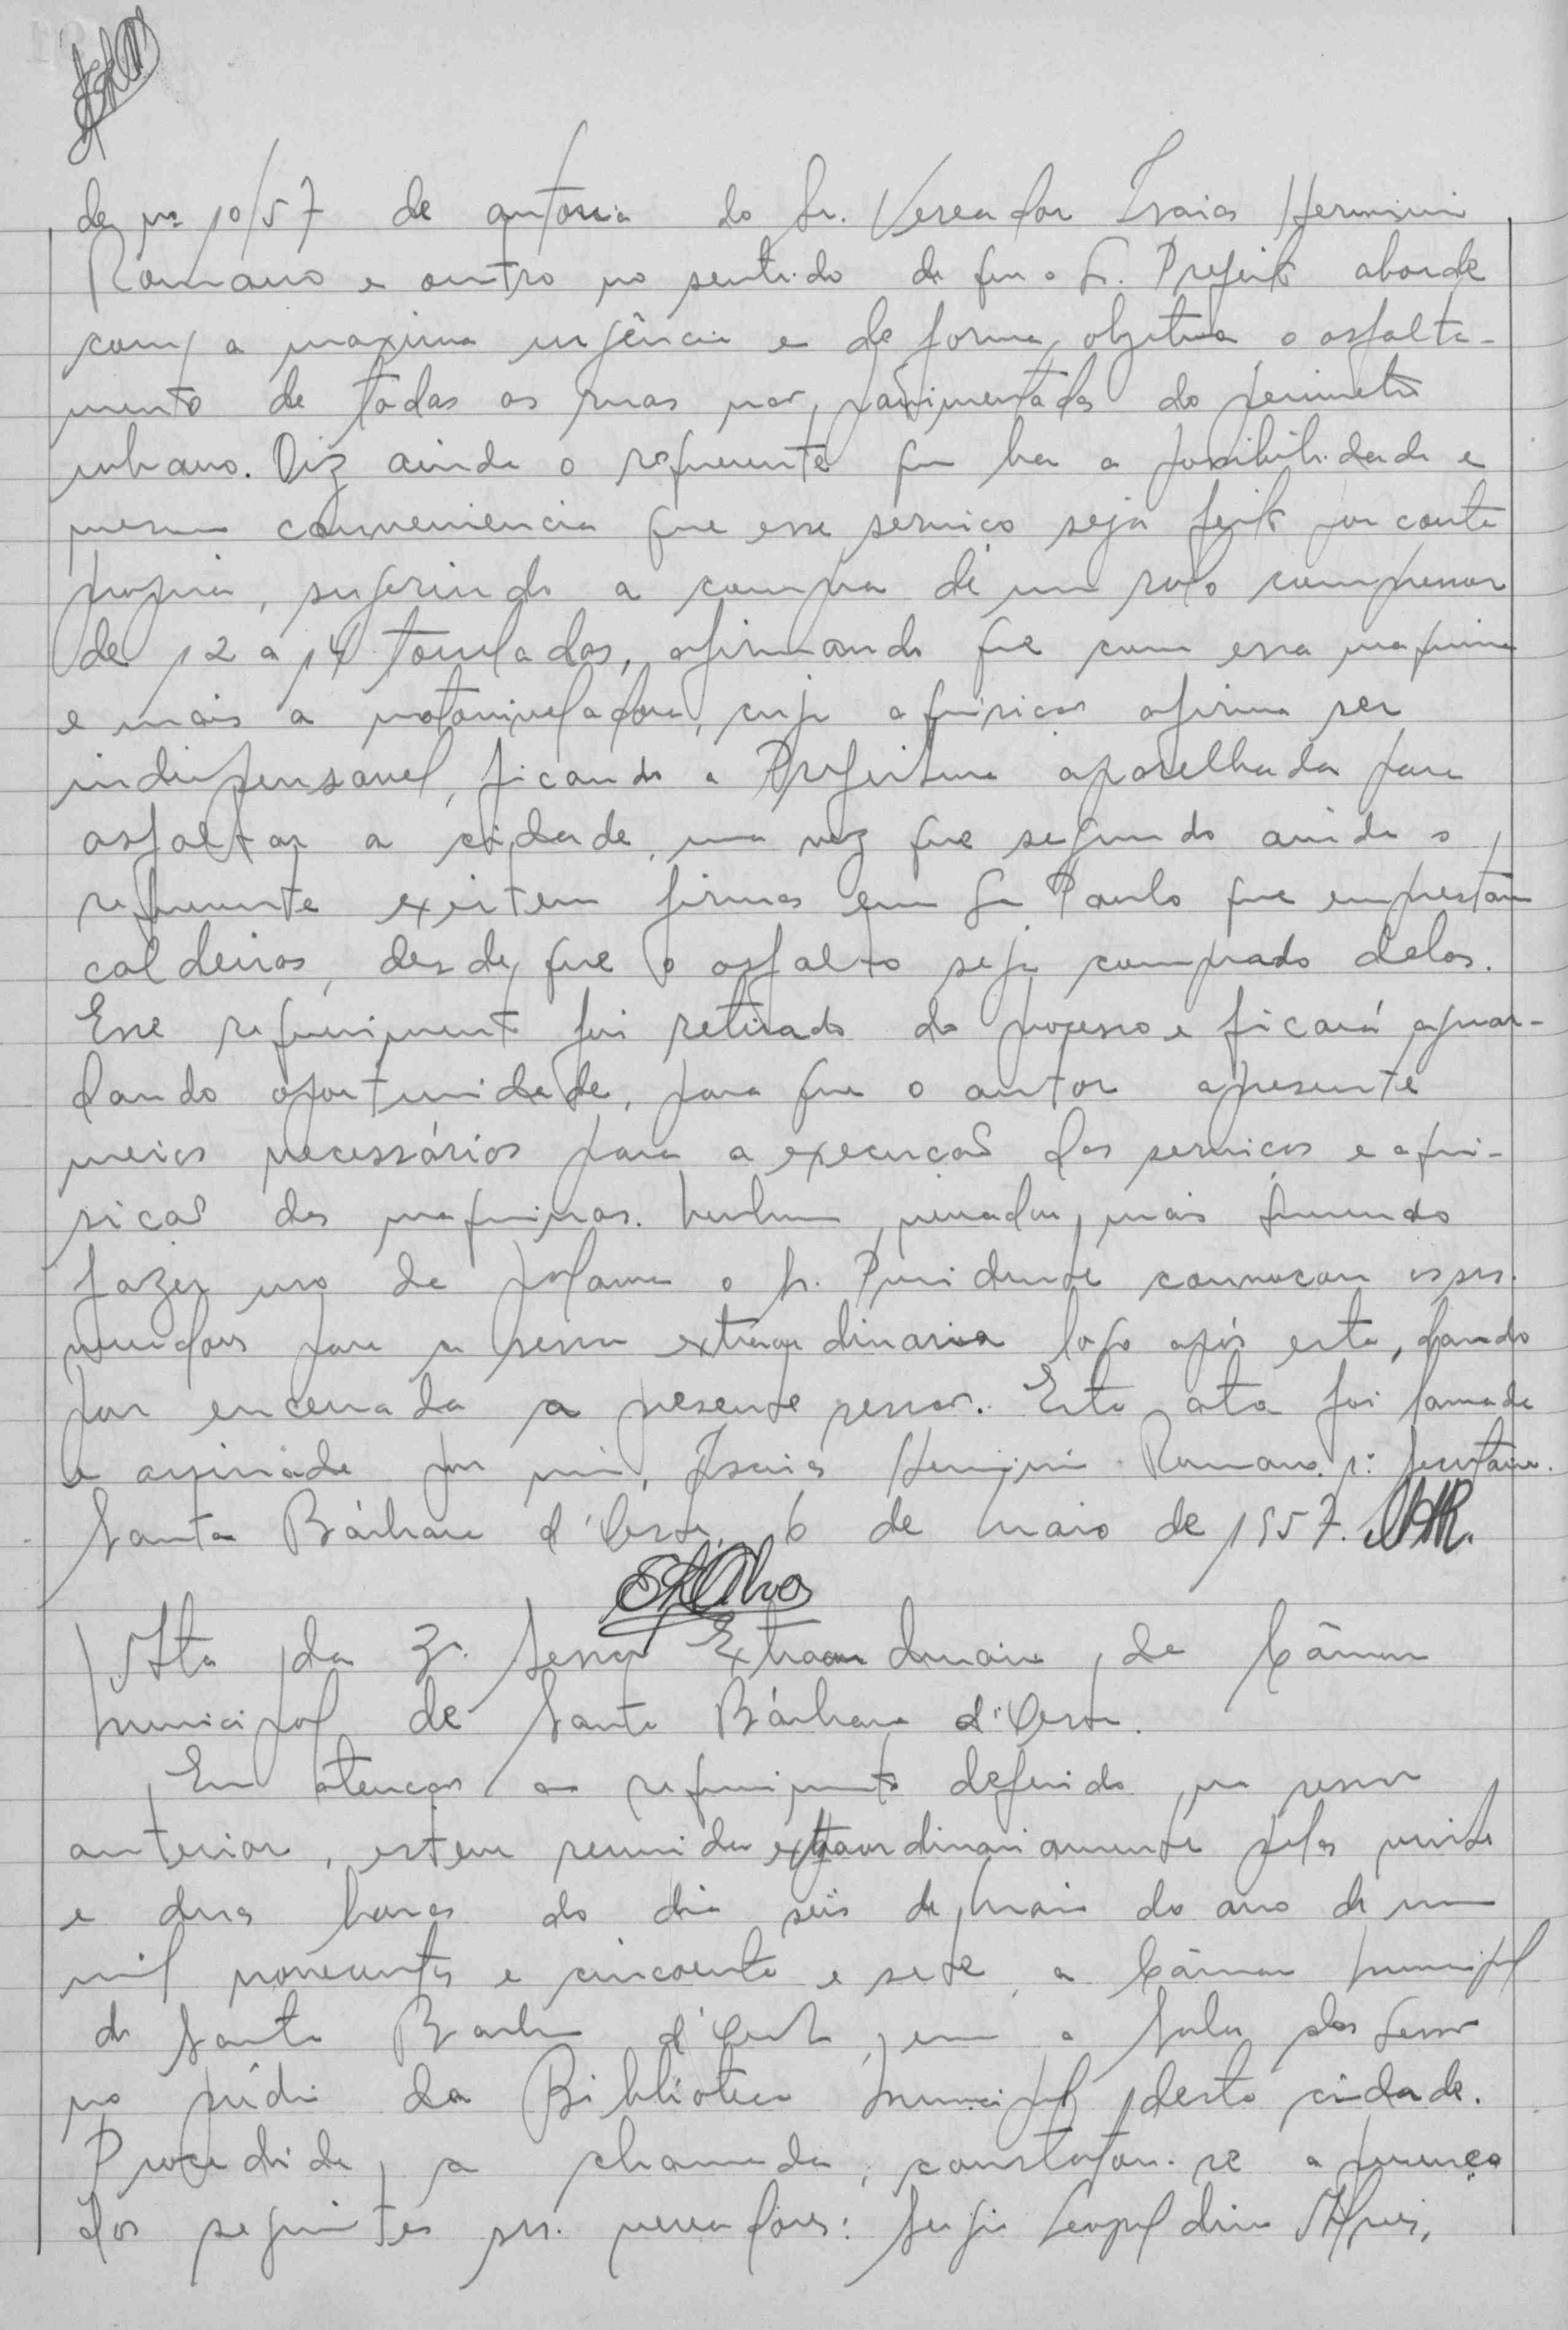 de nº 10/57 de autoria do Sr. Vereador Isaias Herminio
Romano e outro no sentido de que o Sr. Prefeito aborde
com a maxima urgência e de forma objetiva o asfalta-
mento de todas as ruas não pavimentadas do perimetro
urbano. Diz ainda o requerente que ha a possibilidade e
mesmo conveniencia que esse serviço seja feito por conta
propria, sugerindo a compra de um rolo compressor
de 12 a 14 toneladas, afirmando que com essa maquina
e mais a motoniveladora, cuja aquisição afirma ser
indispensavel, ficando a Prefeitura aparelhada para
asfaltar a cidade, uma vez que segundo ainda o
requerente existem firmas em São Paulo que emprestam
caldeiras, desde que o asfalto seja comprado delas.
Esse requerimento foi retirado do processo e ficará aguar-
dando oportunidade, para que o autor apresente
meios necessários para a execução dos serviços e aqui-
sição das maquinas. Nenhum vereador mais querendo
fazer uso da palavra o Sr. Presidente convocou os srs.
vereadores para a sessão extraordinaria logo após esta, dando
por encerrada a presente sessão. Esta ata foi lavrada
e assinada por mim, Isaias Herminio Romano 1º Secretario.
Santa Bárbara d'Oeste, 6 de Maio de 1957. IHR.
Ata da 3ª. Sessão Extraordinaria da Câmara
Municipal de Santa Bárbara d'Oeste.
Em atenção ao requerimento deferido na sessão
anterior, esteve reunida extraordinariamente pelas vinte
e duas horas do dia seis de Maio do ano de um
mil novecentos e cincoenta e sete, a Câmara Municipal
de Santa Barbara d'Oeste, em a Sala das Sessões
no prédio da Biblioteca Municipal desta cidade.
Procedida a chamada, constatou-se a presença
dos seguintes srs. vereadores: Sergio Leopoldino Alves,